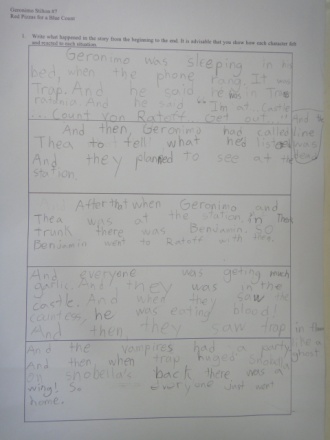 Geronimo Stilton #7
Red Pizzas for a Blue Count
1. Write what happened in the story from the beginning to the end. It is advisable that you show how each character felt
and reacted in each situation.
Geronimo was sleeping in his
bed, when the phone rang. It was
Trap. And he said he is in Tran
ratania. And he said "I'm at castle
... Count von Ratoff Get out" And the
line was
And then, Geronimo had called
Thea to tell what he's listened
And they planned to see at the
station.
After that when Geronimo and
Thea was at the station, in Thea
trunk there was Benjamin. So
Benjamin went to Ratoff with
And everyone was geting much
garlic. And they was in the
castle. And when they saw the
countess, he was eating blood!
And then they saw trap in the
like a
ghost
And the vampires had a party
And then, when trap huged Snobella,
on snobella's back there was a
wring! So everyone went
home.